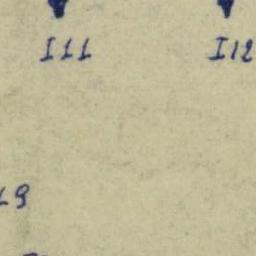 I11 I12
19